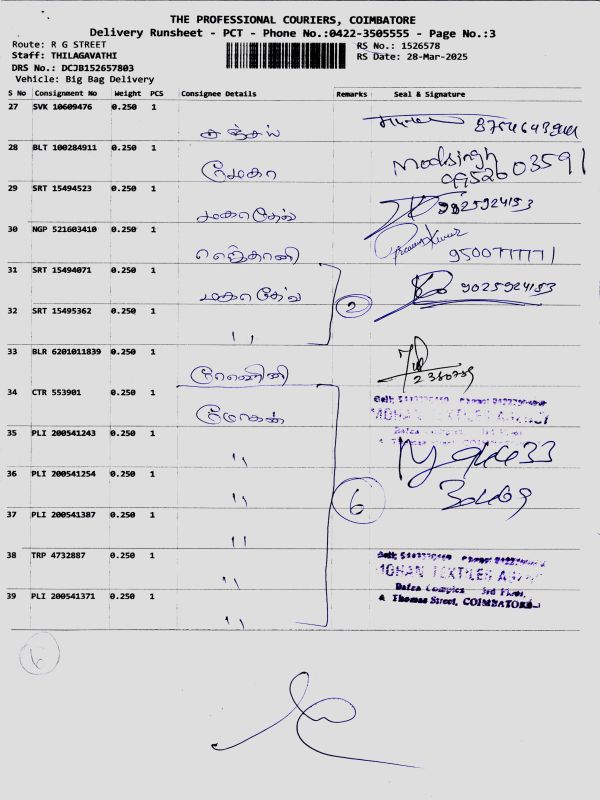 THE PROFESSIONAL COURIERS, COIMBATORE
Delivery Runsheet - PCT - Phone No.:0422-3505555 - Page No.:3
Route: R G STREET
RS No.: 1526578
Staff: THILAGAVATHI
RS Date: 28-Mar-2025
DRS No.: DCJB152657803
Vehicle: Big Bag Delivery
S No Consignment No Weight PCS Consignee Details Remarks Seal & Signature
27 SVK 10609476 0.250 1
28 BLT 100284911 0.250 1
ரேமகா
9952603591
29 SRT 15494523 0.250 1
மகாதேவ்
30 NGP 521603410 0.250 1
9500777771
31 SRT 15494071 0.250 1
மகாதேவ் 9025924153
2
32 SRT 15495362 0.250 1
"
33 BLR 6201011839 0.250 1
34 CTR 553901 0.250 1
மோகன்
MOHAN TEXTILES AGENCY
35 PLI 200541243 0.250 1
"
36 PLI 200541254 0.250 1
"
6
37 PLI 200541387 0.250 1
"
38 TRP 4732887 0.250 1
"
MOHAN TEXTILES AGENCY
39 PLI 200541371 0.250 1
Dafza Complex 3rd Floor,
"
& Thomas Street, COIMBATORE-1
6